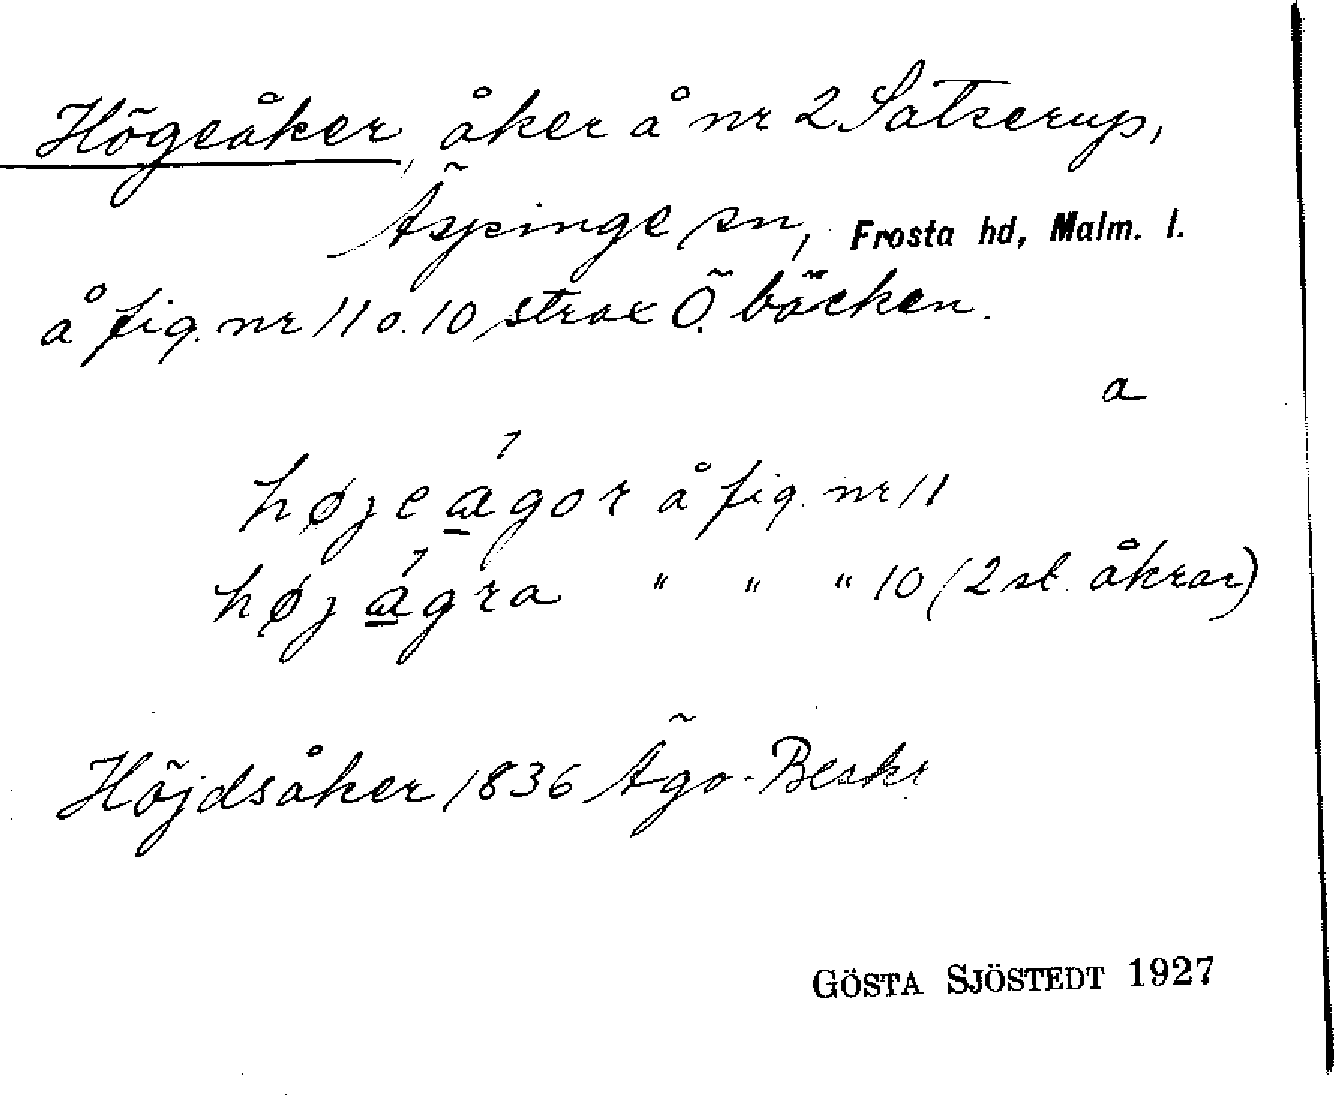 Högeåker, åker å nr 2 Satserup,
Äspinge sn, Frosta hd, Malm. l.
å fig. nr 11 o. 10 strax Ö. bäcken.
a
højeágor å fig. nr 11
højágra " " " 10 (2 st. åkrar)
Höjdsåker 1836 Ägo-Beskr
GÖSTA SJÖSTEDT 1927